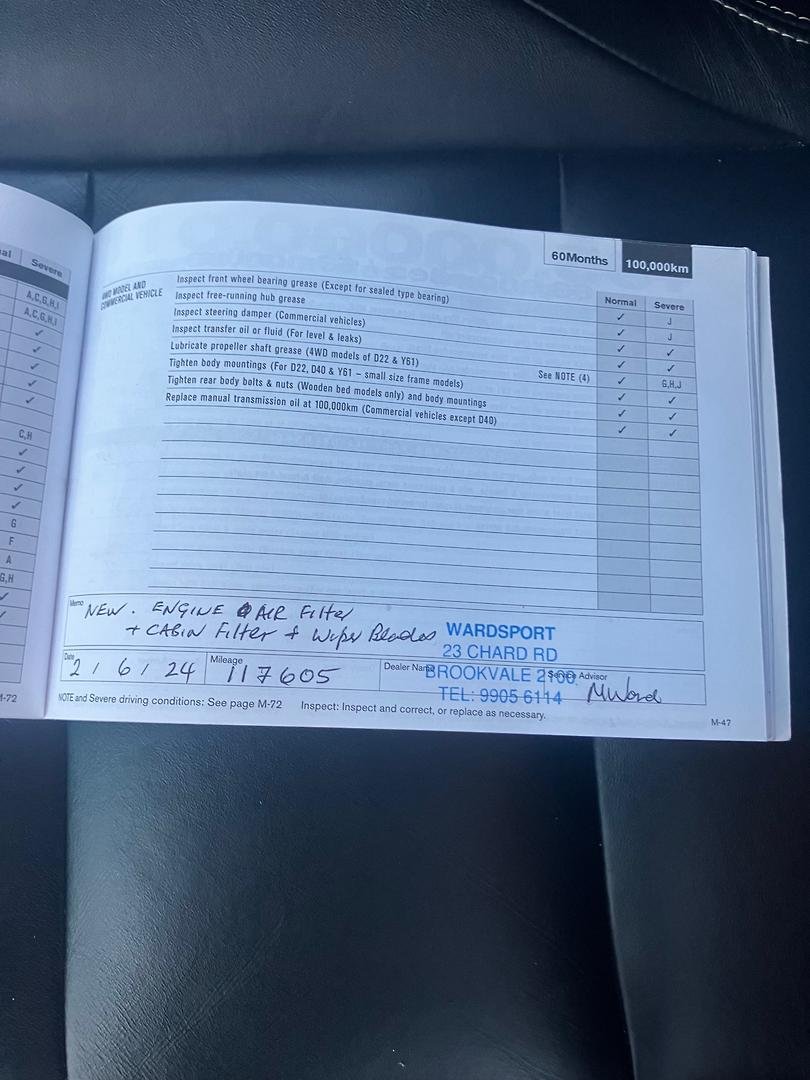 al Severe
A,C,G,H,I
A,C,G,H,I
✓
✓
✓
✓
✓
C,H
✓
✓
✓
✓
G
F
A
G,H
✓
✓
M-72
60Months 100,000km
Normal Severe
4WD MODEL AND
COMMERCIAL VEHICLE
Inspect front wheel bearing grease (Except for sealed type bearing) ✓ J
Inspect free-running hub grease ✓ J
Inspect steering damper (Commercial vehicles) ✓ ✓
Inspect transfer oil or fluid (For level & leaks) ✓ ✓
Lubricate propeller shaft grease (4WD models of D22 & Y61) See NOTE (4) ✓ G,H,J
Tighten body mountings (For D22, D40 & Y61 – small size frame models) ✓ ✓
Tighten rear body bolts & nuts (Wooden bed models only) and body mountings ✓ ✓
Replace manual transmission oil at 100,000km (Commercial vehicles except D40) ✓ ✓
Memo NEW. ENGINE AIR Filter
+ CABIN Filter + Wiper Blades
WARDSPORT
23 CHARD RD
BROOKVALE 2100
TEL: 9905 6114
Date 2 / 6 / 24 Mileage 117605 Dealer Name Service Advisor MWard
NOTE and Severe driving conditions: See page M-72 Inspect: Inspect and correct, or replace as necessary.
M-47